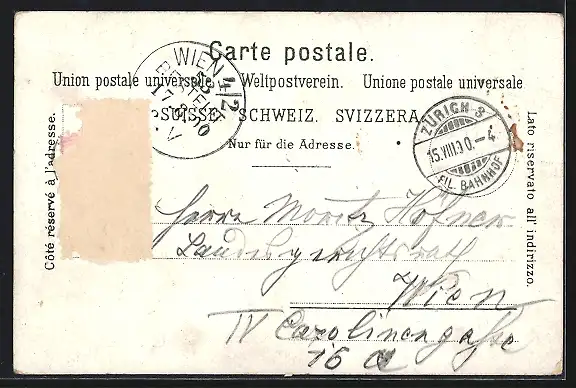 Carte postale.
Union postale universelle. Weltpostverein. Unione postale universale
SUISSE. SCHWEIZ. SVIZZERA.
Nur für die Adresse.
Côté réservé à l'adresse.
Lato riservato all' indirizzo.
WIEN 4/2
BESTELLT
ZÜRICH 3
15.VIII.00.-4
FIL. BAHNHOF
Herrn Moritz Höfner
Landesgerichtsrath
Wien
IV Carolinengasse
16